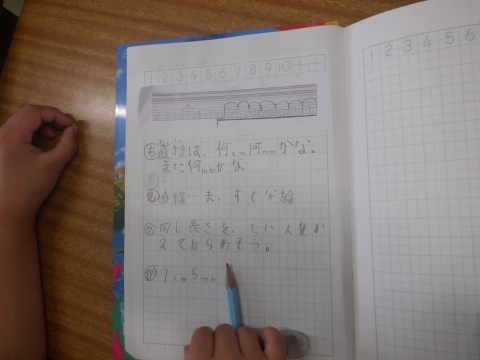 1 2 3 4 5 6 7 8 9 10 + -
1 2 3 4 5 6
も直線は、何cm何mmかな。
また何mmかな
直線…ま、すぐな線
同じ長さを、たんいをか
えてあらわそう。
7cm5mm